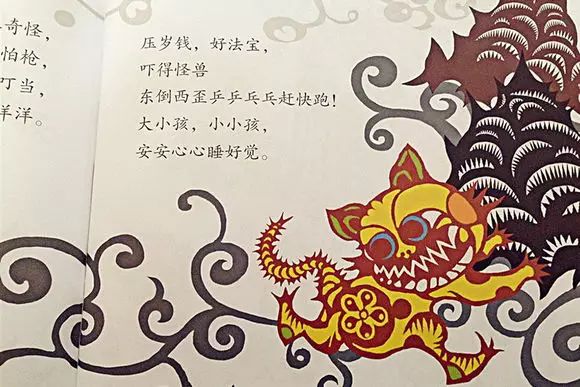 奇怪，
怕枪，
叮当，
洋。
压岁钱，好法宝，
吓得怪兽
东倒西歪乒乒乓乓赶快跑！
大小孩，小小孩，
安安心心睡好觉。